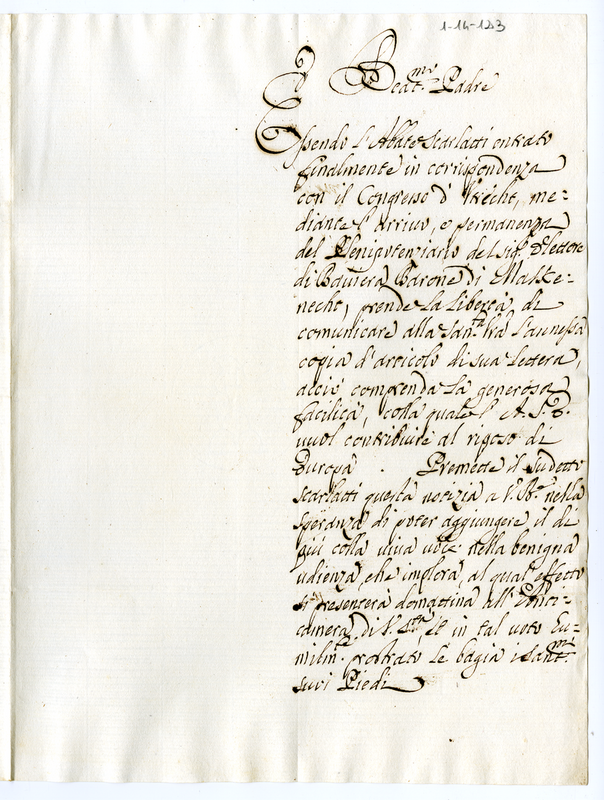 1-14-123
Beat.mo Padre
Essendo l'Abate Scarlatti entrato
finalmente in corrispondenza
con il Congresso d'Utrecht, me=
diante l'arrivo, e permanenza
del Plenipotenziario del Sig.r Elettore
di Baviera Barone di Malkne=
necht, prende la libertà di
comunicare alla San.tà Vra l'annessa
copia d'articolo di sua lettera,
acciò comprenda la generosa
facilità, colla quale l'A.S.E.
vuol contribuire al riposo di
Europa. Premette il sudetto
Scarlatti questa notizia a V. B.ne nella
speranza di poter aggiungere il di
più colla viva voce nella benigna
udienza, che implora, al qual effetto
si presenterà domattina all'Anti=
camera di V. S.tà, et in tal voto hu=
milm.te prostrato le bagia i Sant.mi
suoi Piedi